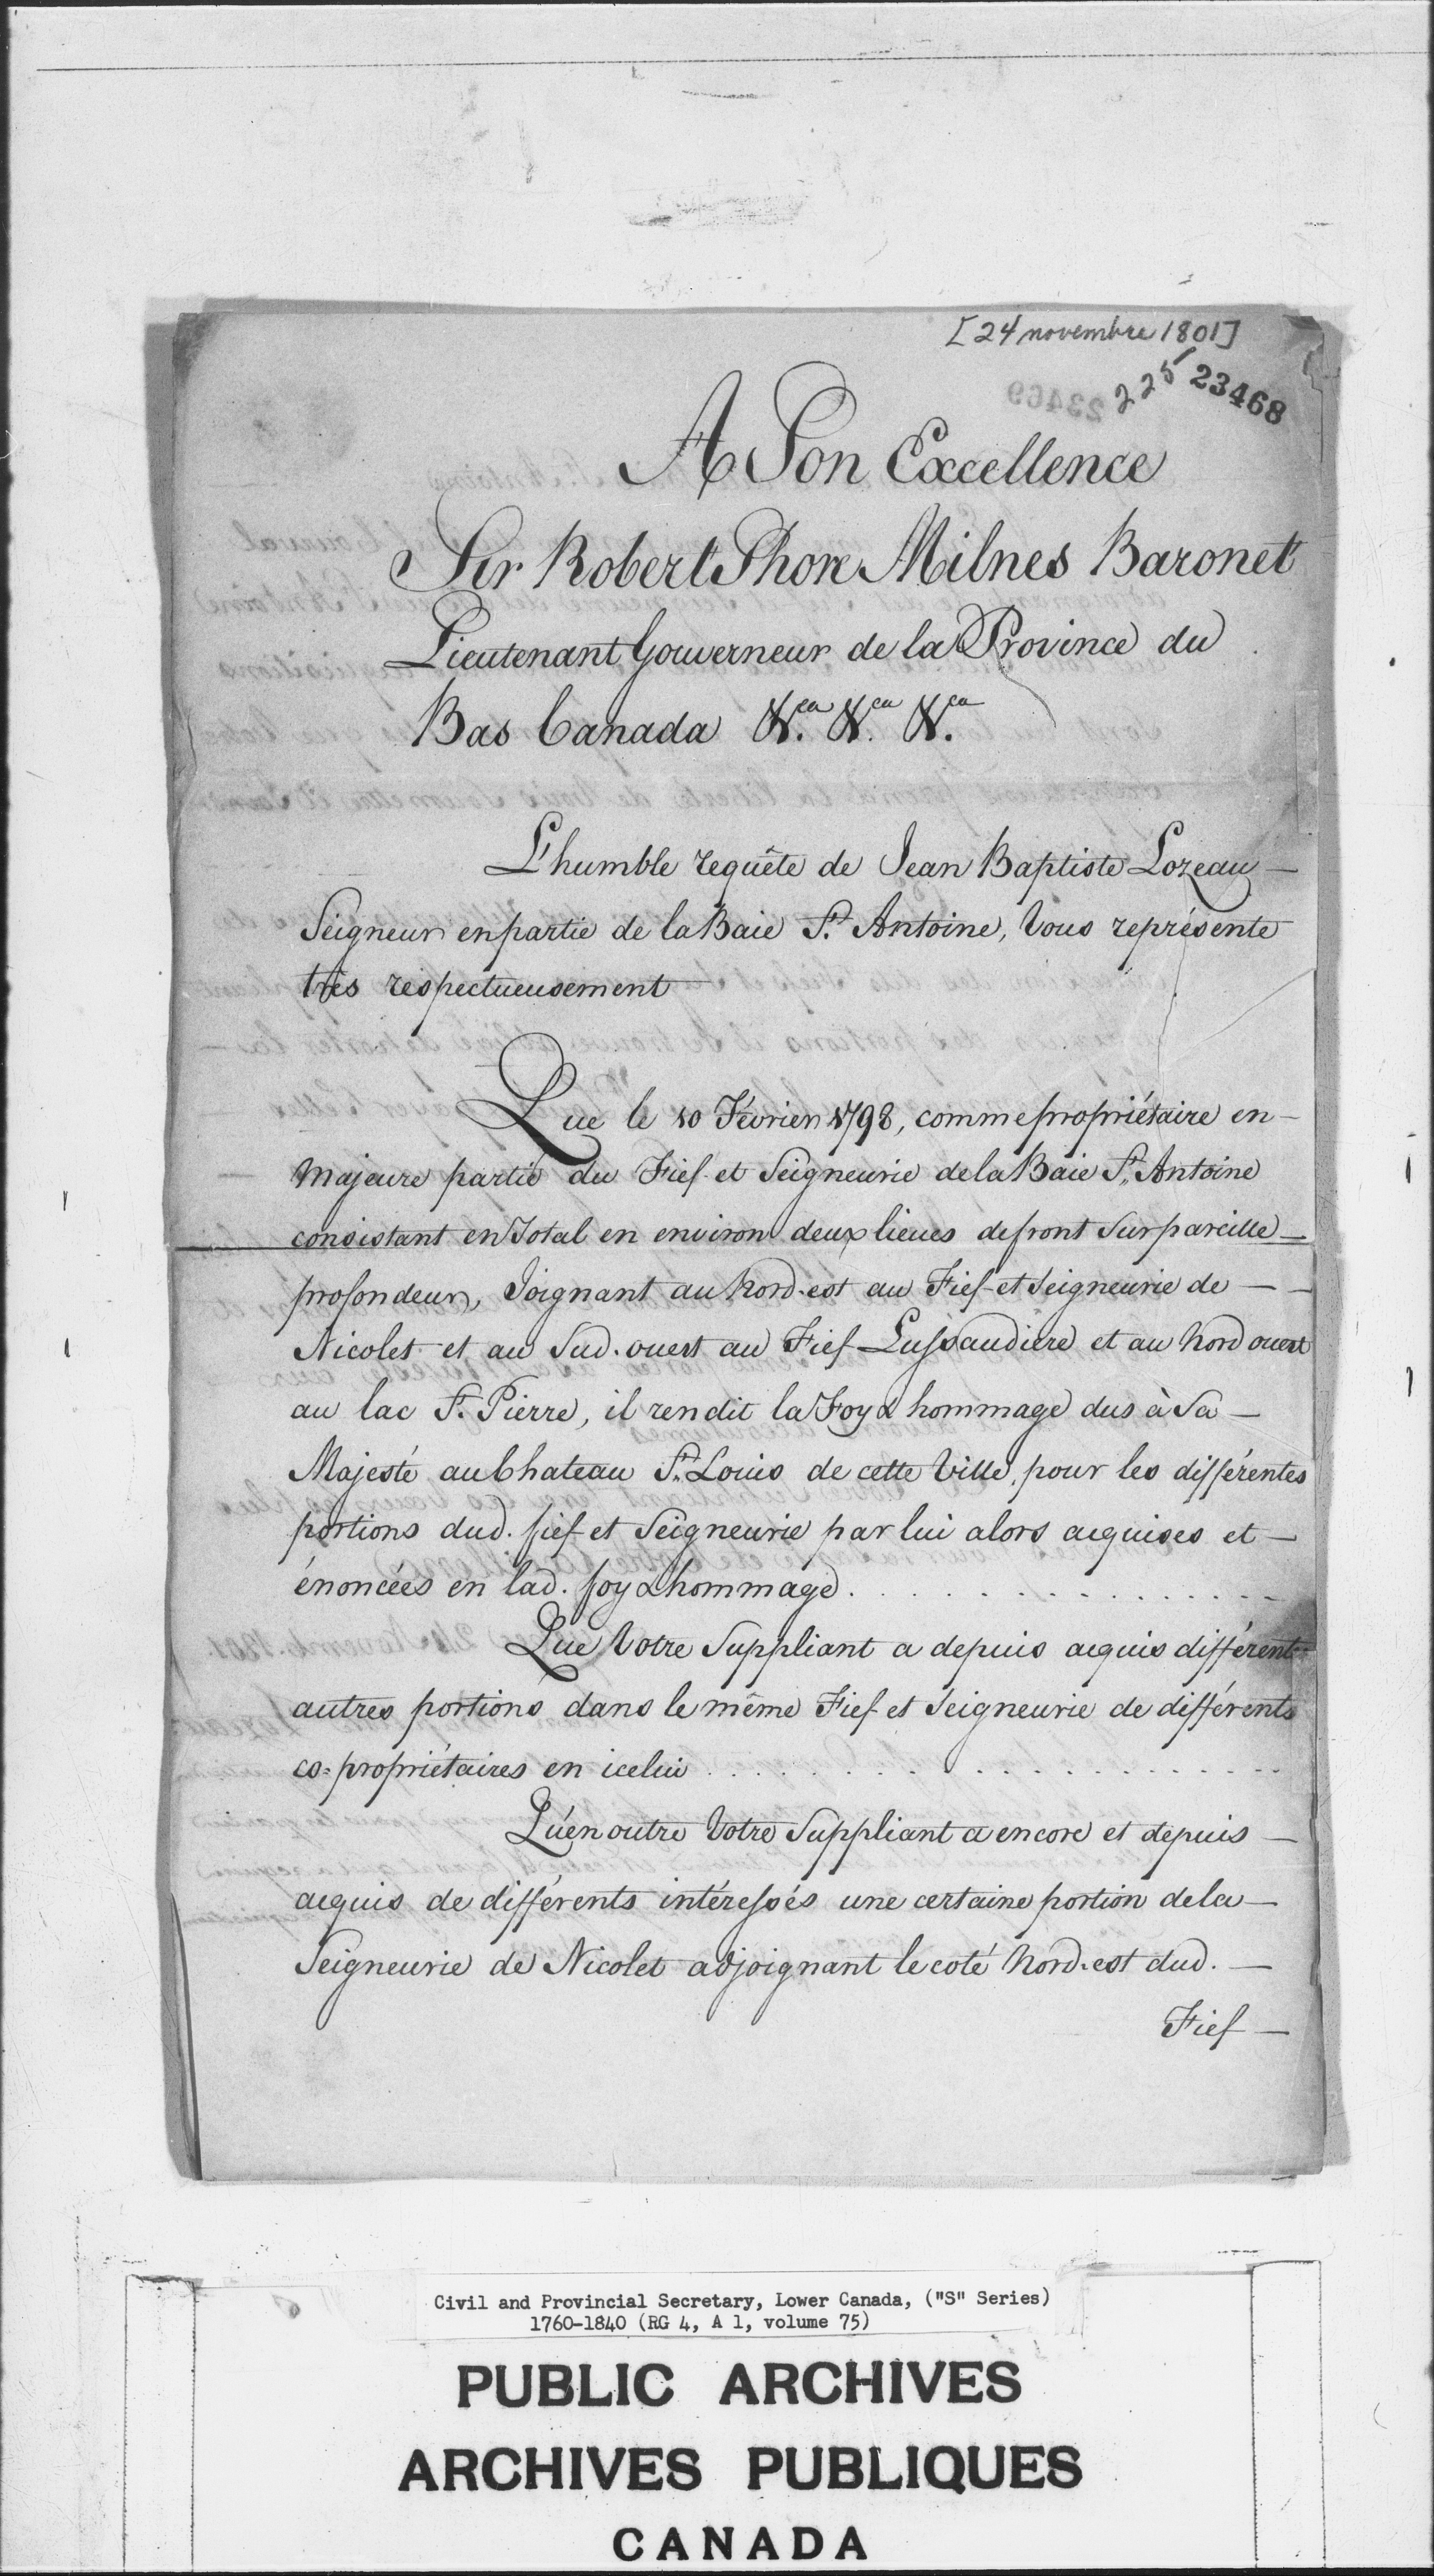 [24 novembre 1801]
225 23468
A Son Excellence
Sir Robert Shore Milnes Baronet
Lieutenant Gouverneur de la Province du
Bas Canada &ca. &ca. &ca.
L'humble requête de Jean Baptiste Lozeau —
Seigneur en partie de la Baie St. Antoine, Vous représente
très respectueusement
Que le 10 Février 1798, comme propriétaire en —
Majeure partie du Fief et Seigneurie de la Baie St. Antoine
consistant en Total en environ deux lieues de front Sur pareille —
profondeur, Joignant au Nord-est au Fief et Seigneurie de — —
Nicolet et au Sud-ouest au Fief Lussaudiere et au Nord ouest
au lac St. Pierre, il rendit la Foy & hommage dus à Sa —
Majesté au Chateau St. Louis de cette Ville, pour les différentes
portions dud. fief et Seigneurie par lui alors acquises et —
énoncées en lad. foy & hommage . . . . . . . . . . . . . .
Que Votre Suppliant a depuis acquis différents
autres portions dans le même Fief et Seigneurie de différents
co=propriétaires en icelui . . . . . . . . . . . . . . . . . .
Qu'en outre Votre Suppliant a encore et depuis —
acquis de différents intéressés une certaine portion de la —
Seigneurie de Nicolet adjoignant le coté Nord-est dud. —
Fief —
Civil and Provincial Secretary, Lower Canada, ("S" Series)
1760-1840 (RG 4, A 1, volume 75)
PUBLIC ARCHIVES
ARCHIVES PUBLIQUES
CANADA